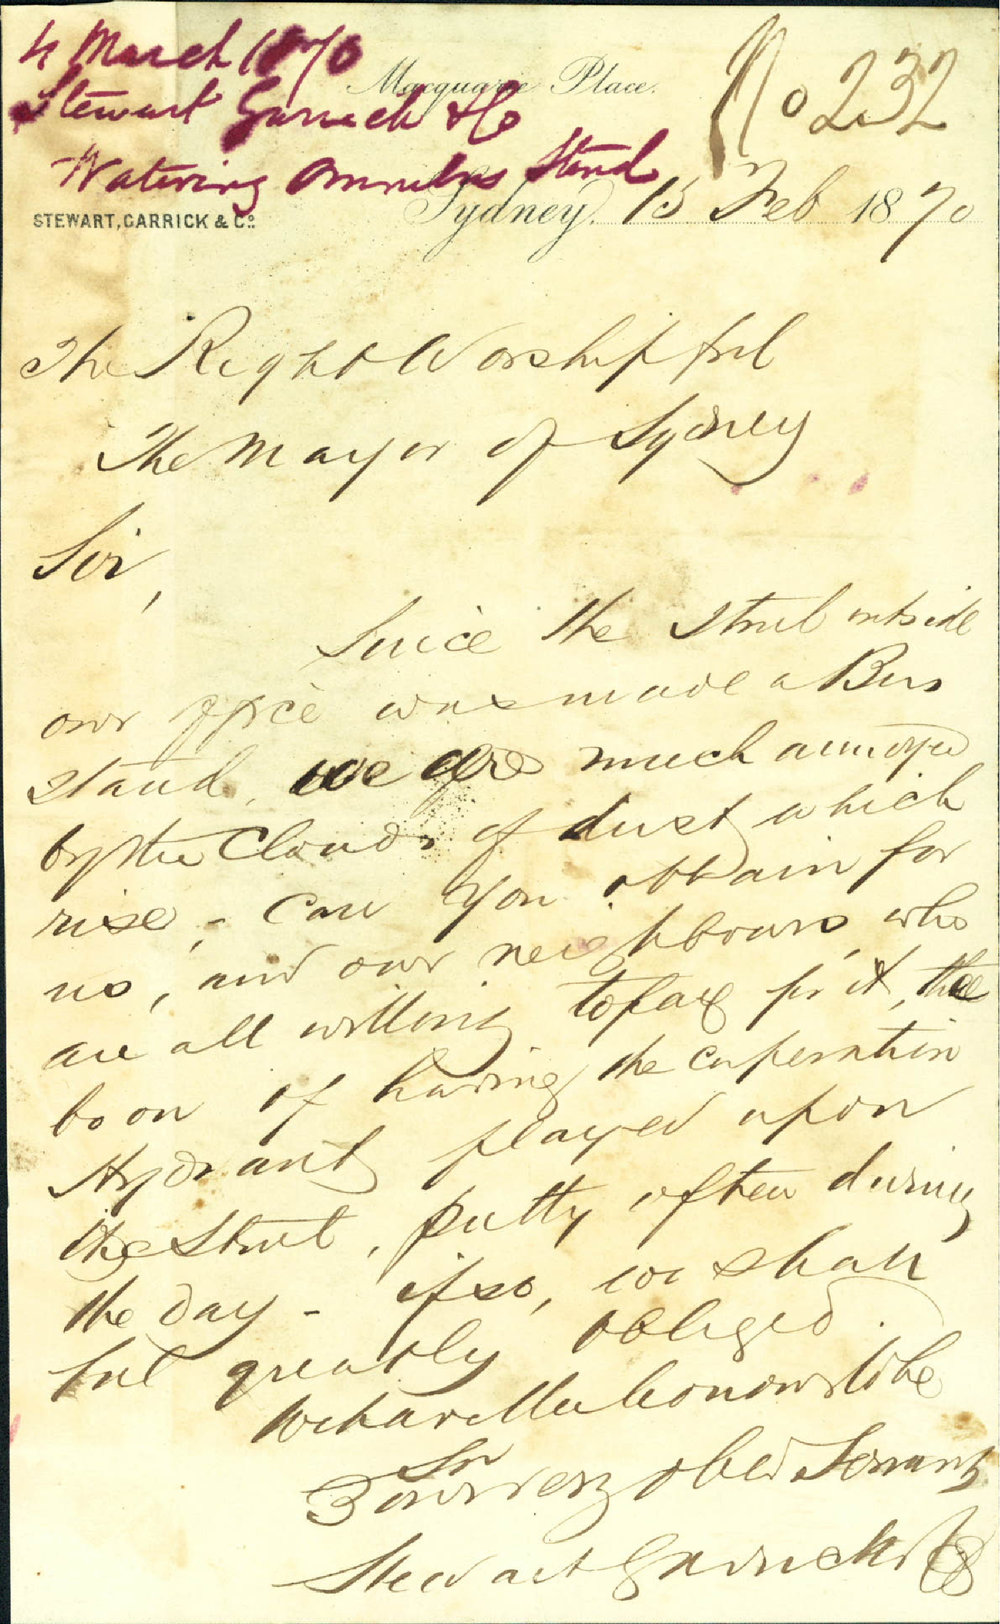 4 March 1870
Stewart Garrick & Co
Watering Omnibus Stand
Macquarie Place.
No 232
STEWART, CARRICK & Co.
Sydney. 15 Feb 1870
The Right Worshipful
The Mayor of Sydney
Sir,
Since the Street outside
our office was made a Bus
stand, we are much annoyed
by the Clouds of dust which
rise, - Can you obtain for
us, and our neighbours, who
are all willing to pay for it, the
boon of having the Corporation
Hydrant played upon
the Street, pretty often during
the day - if so, we shall
feel greatly obliged.
We have the honour to be
Sir
Your very obed Servants
Stewart Garrick & Co